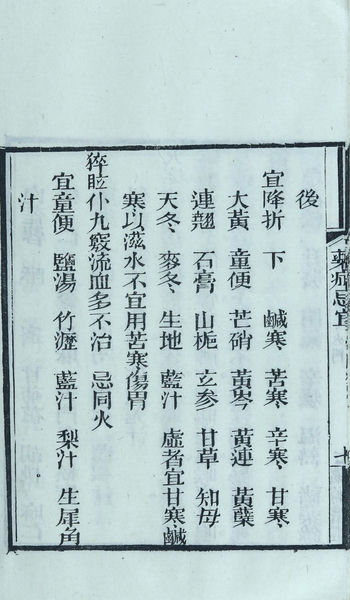 後
宜降折 下 鹹寒 苦寒 辛寒 甘寒
大黃 童便 芒硝 黃芩 黃連 黃蘗
連翹 石膏 山梔 玄參 甘草 知母
天冬 麥冬 生地 藍汁 虛者宜甘寒鹹
寒以滋水不宜用苦寒傷胃
猝眩仆九竅流血多不治 忌同火
宜童便 鹽湯 竹瀝 藍汁 梨汁 生犀角
汁